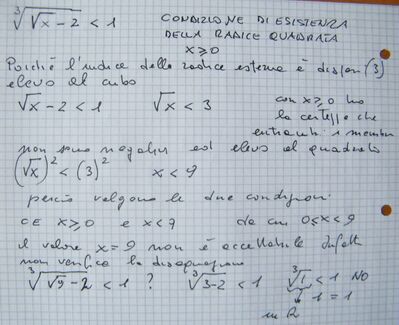 ∛(√x − 2) < 1 CONDIZIONE DI ESISTENZA
DELLA RADICE QUADRATA
x ≥ 0
Poiché l'indice della radice esterna è dispari (3)
elevo al cubo
√x − 2 < 1 √x < 3 con x ≥ 0 ho
la certezza che
entrambi i membri
non sono negativi ed elevo al quadrato
(√x)² < (3)² x < 9
perciò valgono le due condizioni
CE x ≥ 0 e x < 9 da cui 0 ≤ x < 9
il valore x = 9 non è accettabile infatti
non verifica la disequazione
∛(√9 − 2) < 1 ? ∛(3−2) < 1 ∛1 < 1 NO
↓ 1 = 1
in R